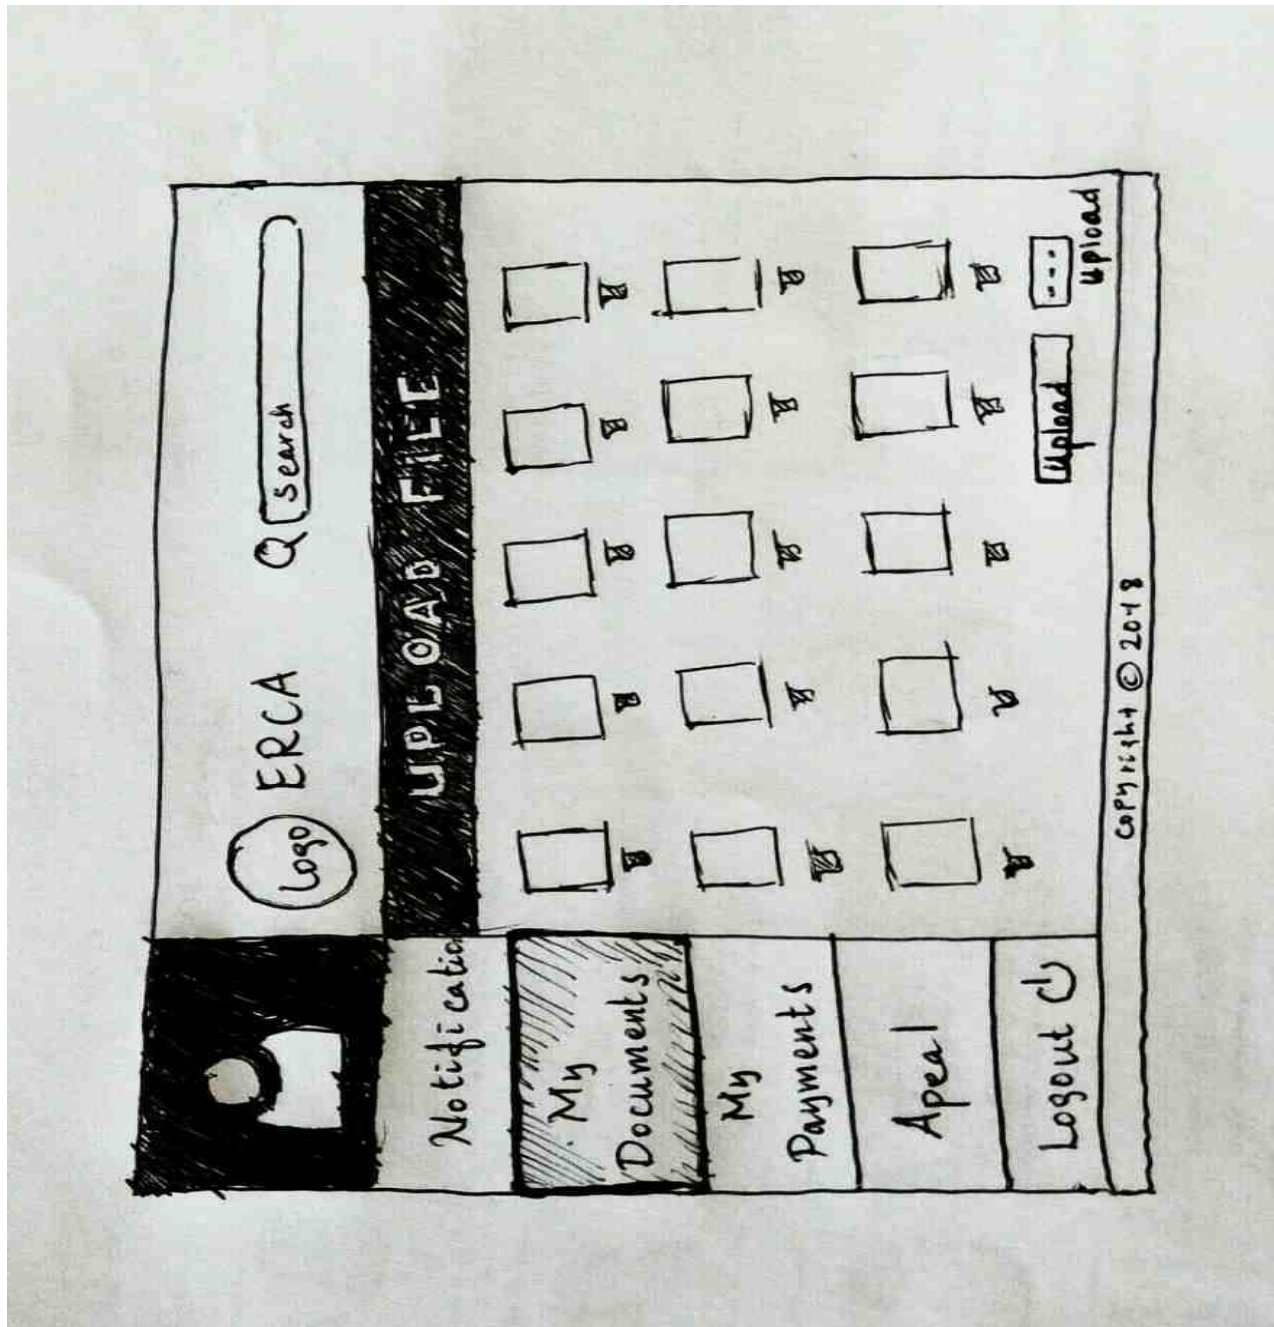 Logo
ERCA
search
UPLOAD FILE
Notification
My
Documents
My
Payments
Apeal
Logout
Upload
...
Upload
Copyright © 2018